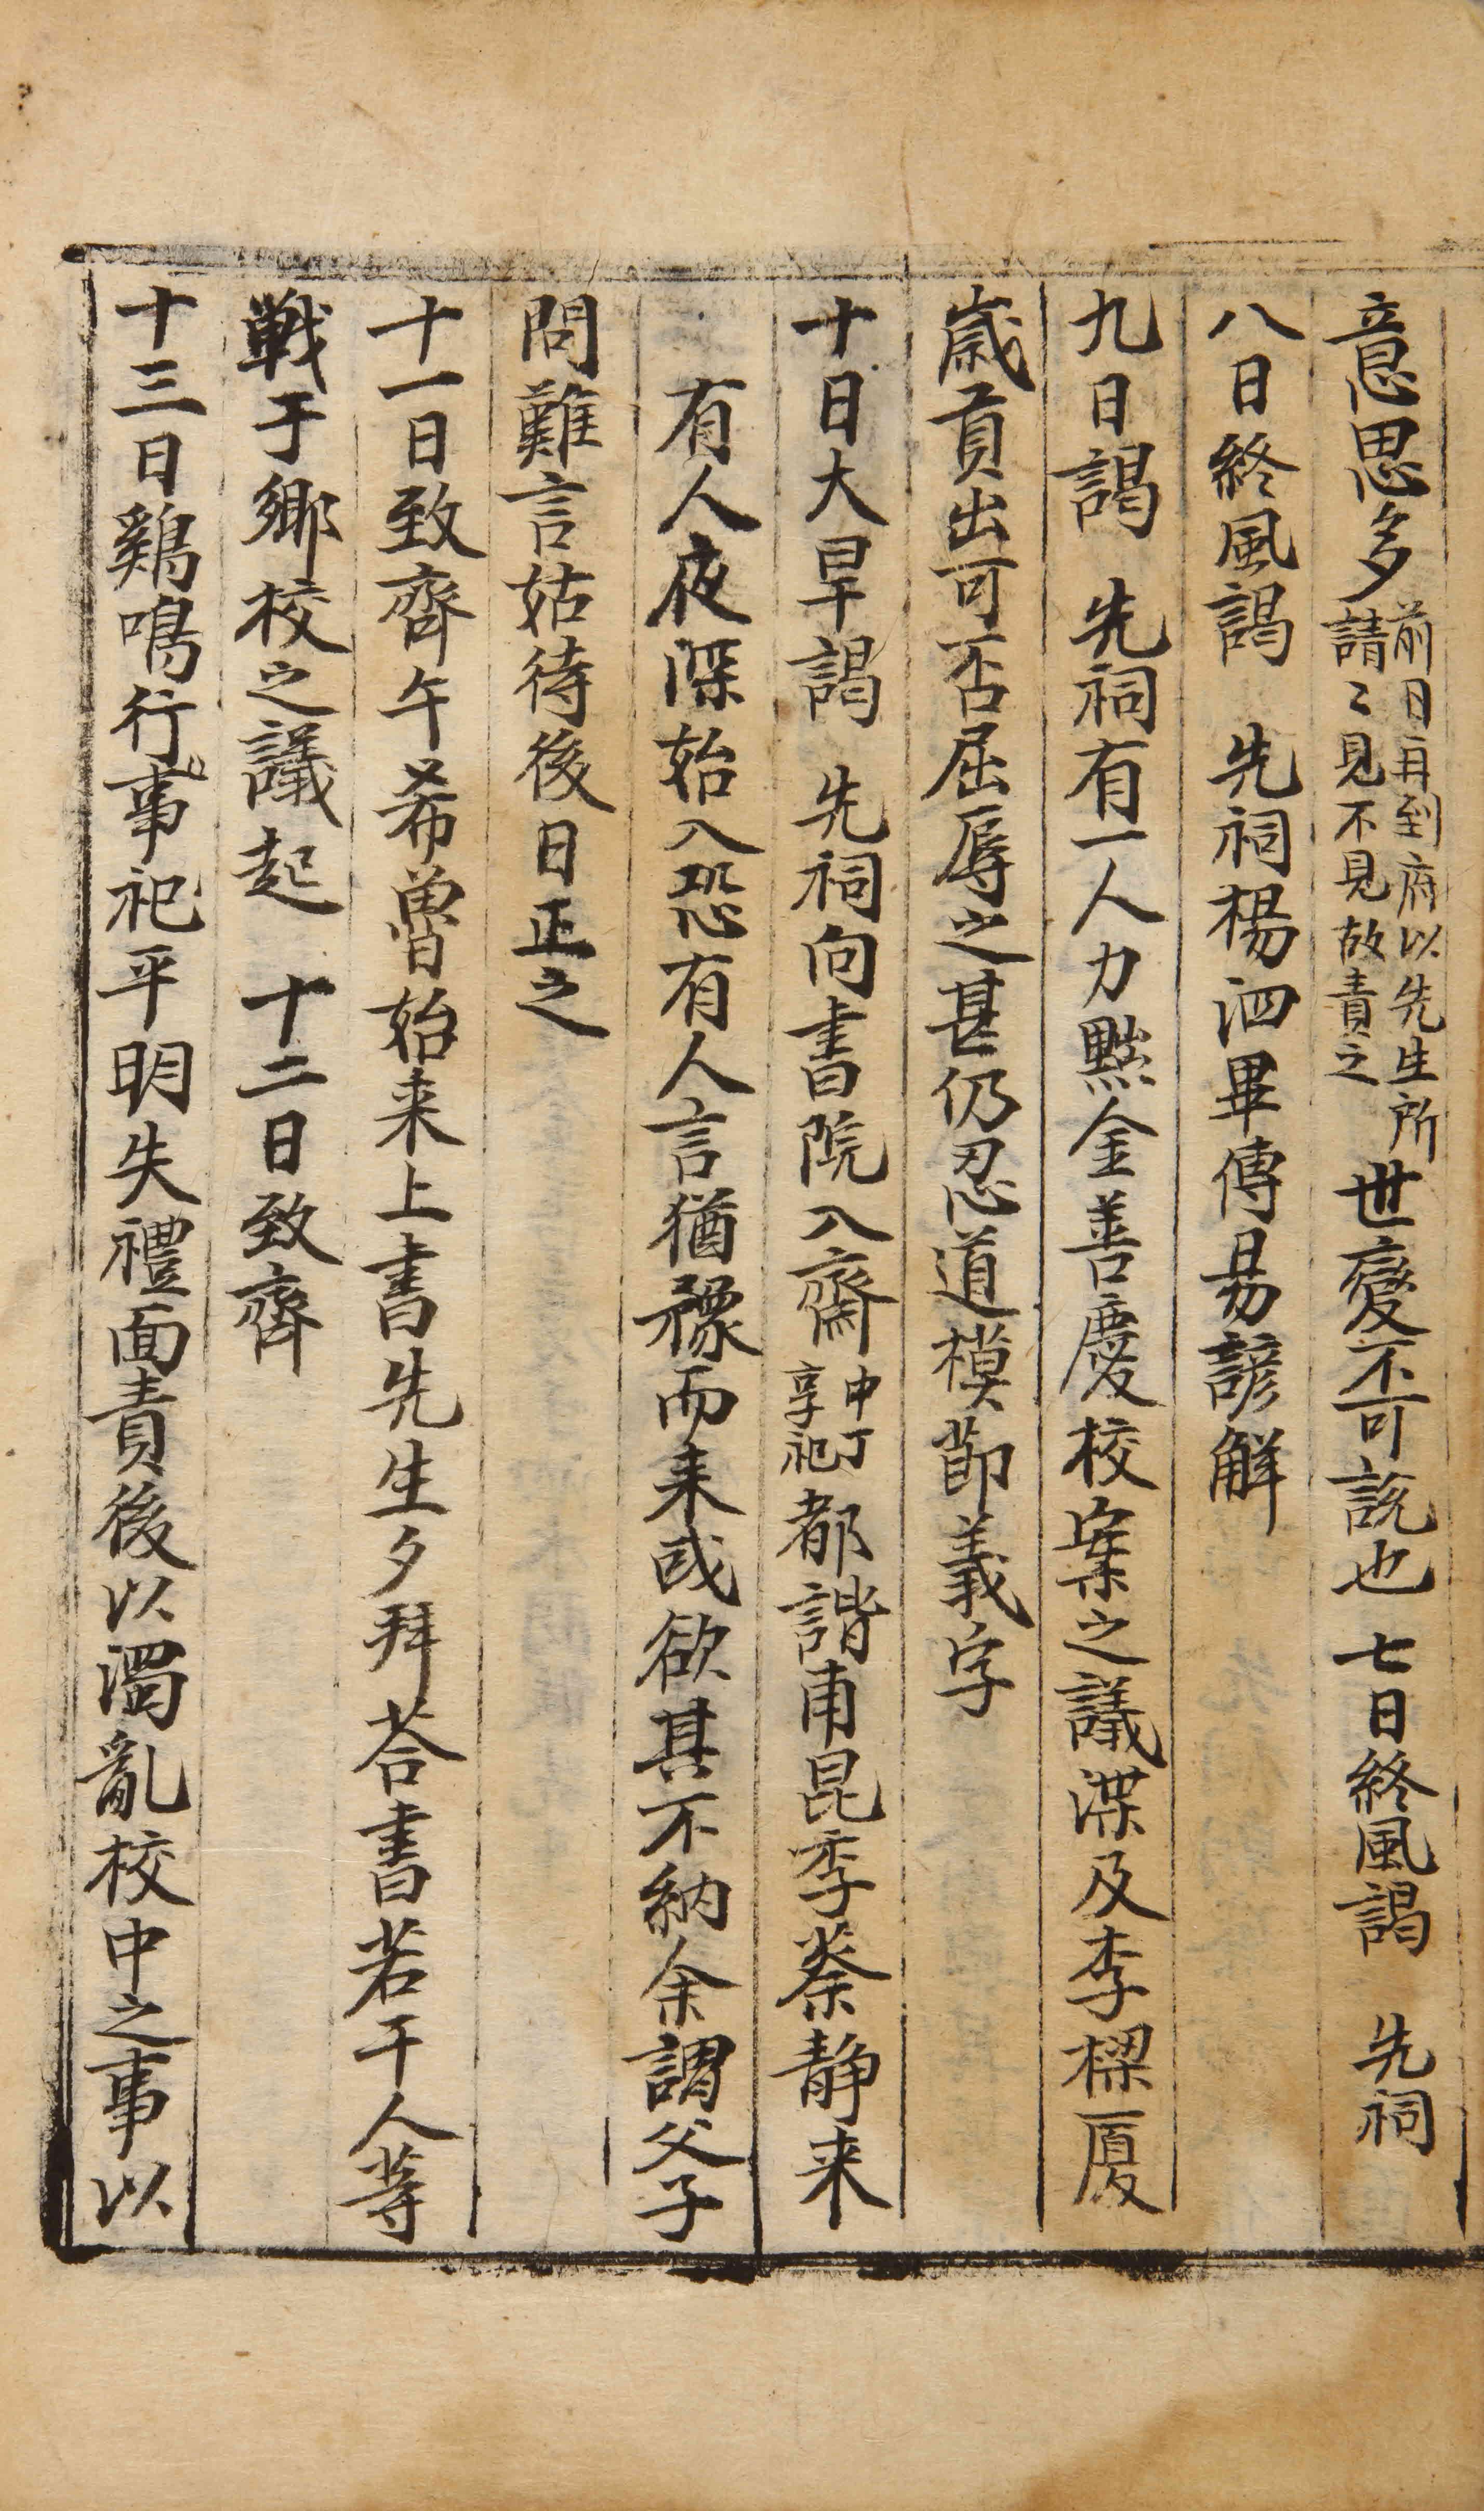 意思多前日再到府以先生所請〻見不見故責之世變不可說也 七日終風謁 先祠
八日終風謁 先祠楊泗畢傳易諺解
九日謁 先祠有一人力黜金善慶校案之議渫及李樑厦
歲貢出可否屈辱之甚仍忍道模節義字
十日大旱謁 先祠向書院入齋中丁享祀都諧甫昆季蔡静来
有人夜深始入恐有人言猶豫而来或欲其不納余謂父子
問難言姑待後日正之
十一日致齊午希魯始来上書先生夕拜荅書若干人等
戰于鄉校之議起 十二日致齊
十三日鷄鳴行事祀平明失禮面責後以濁亂校中之事以